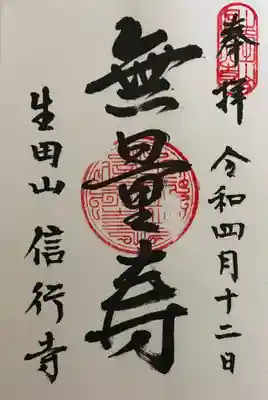 奉拝
令和四月十二日
無量寿
生田山 信行寺